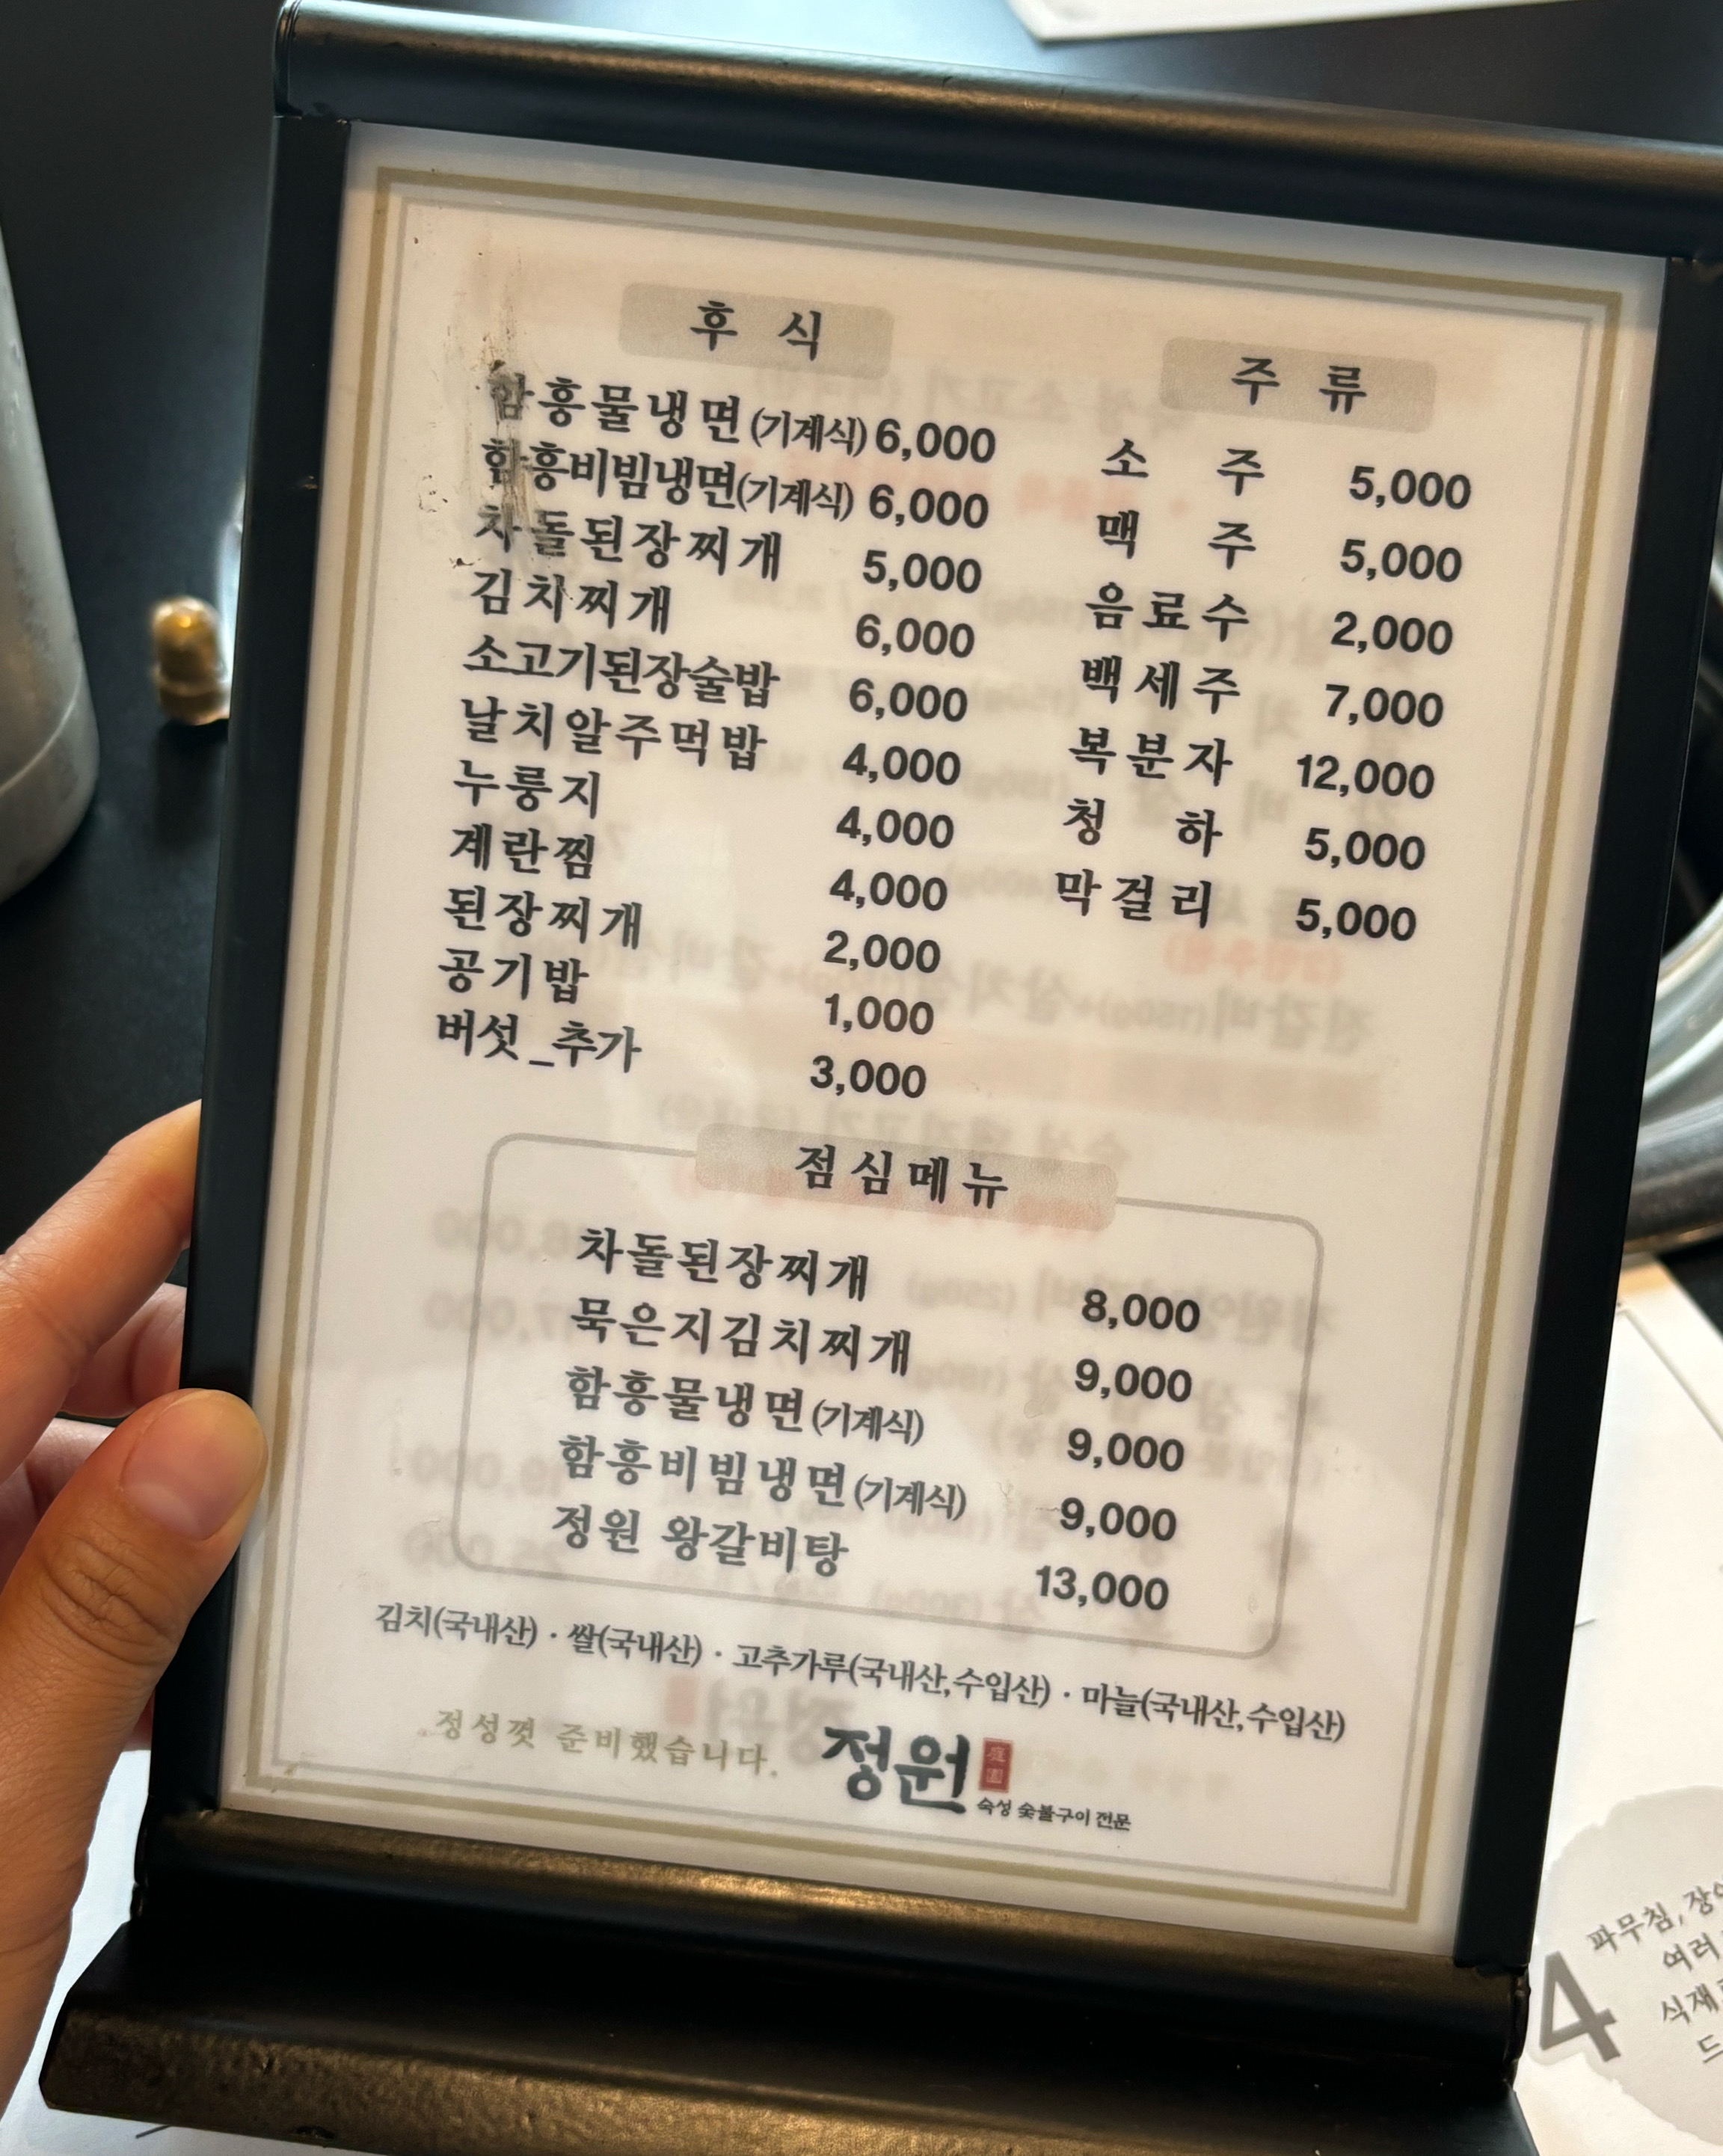 후 식
함흥물냉면(기계식) 6,000
함흥비빔냉면(기계식) 6,000
차돌된장찌개 5,000
김치찌개 6,000
소고기된장술밥 6,000
날치알주먹밥 4,000
누룽지 4,000
계란찜 4,000
된장찌개 2,000
공기밥 1,000
버섯_추가 3,000
주 류
소 주 5,000
맥 주 5,000
음료수 2,000
백세주 7,000
복분자 12,000
청 하 5,000
막걸리 5,000
점심메뉴
차돌된장찌개 8,000
묵은지김치찌개 9,000
함흥물냉면(기계식) 9,000
함흥비빔냉면(기계식) 9,000
정원 왕갈비탕 13,000
김치(국내산) · 쌀(국내산) · 고추가루(국내산,수입산) · 마늘(국내산,수입산)
정성껏 준비했습니다.
정원
庭園
숙성 숯불구이 전문
4
파무침,
여러